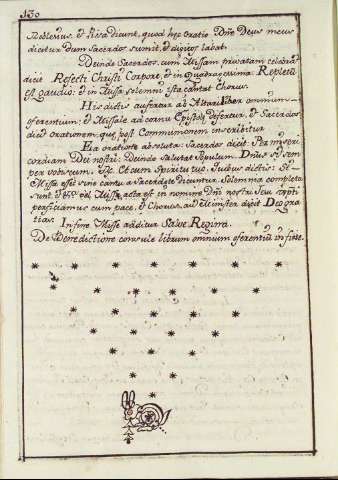 130
Nobleñus. & Risa Dicunt, quod hęc oratio Dñe Deus meus
dicitur dum Sacerdos sumit, & digitos labat.
Deinde Sacerdos, cum Missam privatam celebrat
dicit Refecti Christi Corpore, & in Quadragessima: Repleti
est gaudio; & in Missa solemni ista cantat Chorus.
His dictis aufertur ab Altari liber omnium
oferentium: & Missale ad cornu Epistolę defertur, & Sacerdos
dicit orationem, quę post Communionem inscribitur.
Ea oratione absoluta: Sacerdos dicit. Per miseri
cordiam Dei nostri: Deinde salutat Populum. Dñus sit sem
per vobiscum. Et cum Spiritu tuo. Quibus dictis: Si
Missa est sine cantu a Sacerdote dicuntur. Solemnia completa
sunt. Missa acta est in nomine Dñi nostri Jesu
perficiamus cum pace. & Chorus, au Minister dicit Deo gra
tias. In fine Missę additur Salve Regina.
De Benedictione consule librum omnium oferentiũ in fine.